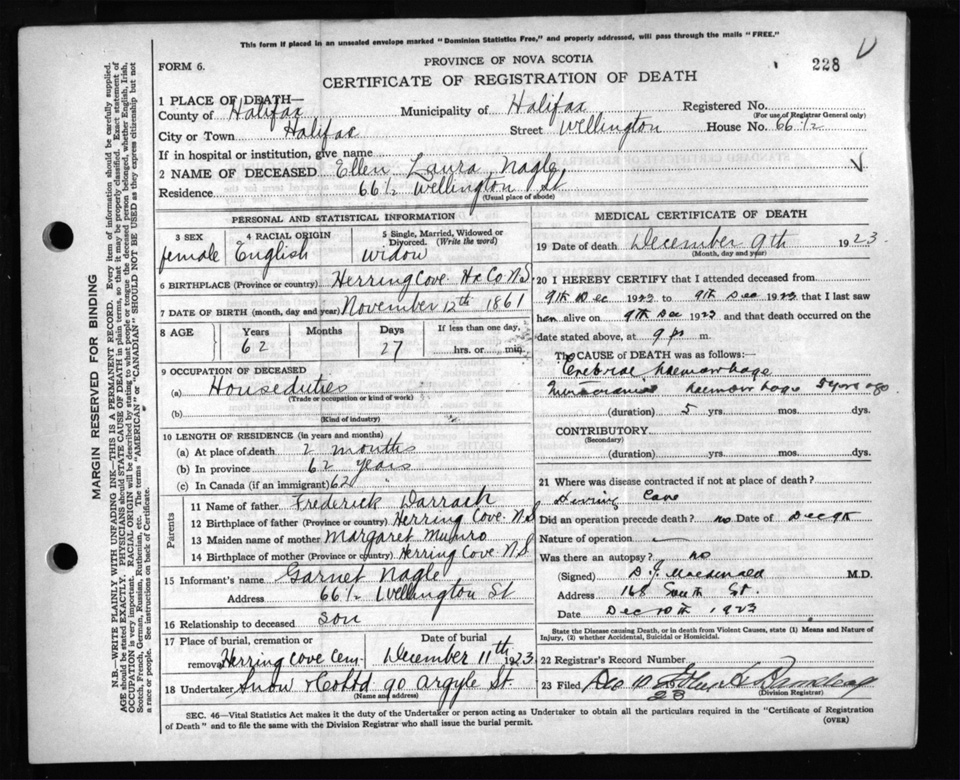 This form if placed in an unsealed envelope marked "Dominion Statistics Free," and properly addressed, will pass through the mails "FREE."
FORM 6.
PROVINCE OF NOVA SCOTIA
228
CERTIFICATE OF REGISTRATION OF DEATH
1 PLACE OF DEATH—
County of Halifax Municipality of Halifax Registered No.
(For use of Registrar General only)
City or Town Halifax Street Wellington House No. 66 1/2
If in hospital or institution, give name
2 NAME OF DECEASED Ellen Laura Nagle
Residence 66 1/2 Wellington St
(Usual place of abode)
PERSONAL AND STATISTICAL INFORMATION
3 SEX 4 RACIAL ORIGIN 5 Single, Married, Widowed or Divorced. (Write the word)
female English widow
6 BIRTHPLACE (Province or country) Herring Cove Hx Co N.S.
7 DATE OF BIRTH (month, day and year) November 12th 1861
8 AGE Years Months Days If less than one day,
62 27 hrs. or min.
9 OCCUPATION OF DECEASED
(a) House duties
(Trade or occupation or kind of work)
(b)
(Kind of industry)
10 LENGTH OF RESIDENCE (in years and months)
(a) At place of death 2 months
(b) In province 62 years
(c) In Canada (if an immigrant) 62 "
Parents
11 Name of father Frederick Darrach
12 Birthplace of father (Province or country) Herring Cove N.S
13 Maiden name of mother Margaret Munro
14 Birthplace of mother (Province or country) Herring Cove N.S
15 Informant's name Garnet Nagle
Address 66 1/2 Wellington St
16 Relationship to deceased son
17 Place of burial, cremation or removal Herring Cove Cem- Date of burial December 11th 1923
18 Undertaker Snow & Co Ltd 90 Argyle St.
(Name and address)
MEDICAL CERTIFICATE OF DEATH
19 Date of death December 9th 1923
(Month, day and year)
20 I HEREBY CERTIFY that I attended deceased from
9th Dec 1923 to 9th Dec 1923 that I last saw
her alive on 9th Dec 1923 and that death occurred on the
date stated above, at 9 p m.
The CAUSE OF DEATH was as follows:—
Cerebral haemorrhage
haemorrhage 5 yrs ago
(duration) 5 yrs. mos. dys.
CONTRIBUTORY
(Secondary)
(duration) yrs. mos. dys.
21 Where was disease contracted if not at place of death?
Herring Cove
Did an operation precede death? no Date of Dec 9th
Nature of operation —
Was there an autopsy? no
(Signed) Macdonald M.D.
Address 168 South St.
Date Dec 10th 1923
State the Disease causing Death, or in death from Violent Causes, state (1) Means and Nature of Injury, (2) whether Accidental, Suicidal or Homicidal.
22 Registrar's Record Number
23 Filed Dec 10
23
(Division Registrar)
SEC. 46—Vital Statistics Act makes it the duty of the Undertaker or person acting as Undertaker to obtain all the particulars required in the "Certificate of Registration
of Death" and to file the same with the Division Registrar who shall issue the burial permit.
(OVER)
MARGIN RESERVED FOR BINDING
N.B.—WRITE PLAINLY WITH UNFADING INK—THIS IS A PERMANENT RECORD. Every item of information should be carefully supplied.
AGE should be stated EXACTLY. PHYSICIANS should STATE CAUSE OF DEATH in plain terms, so that it may be properly classified. Exact statement of
OCCUPATION is very important. RACIAL ORIGIN will be described by stating to what people or tongue the deceased person belonged, whether English, Irish,
Scotch, French, German, Russian, Ruthenian, etc. The terms "AMERICAN" or "CANADIAN" SHOULD NOT BE USED as they express citizenship but not
a race or people. See instructions on back of Certificate.